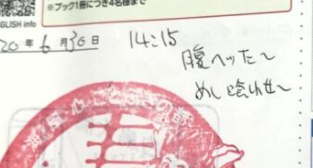 ※ブック1冊につき4名様まで
GLISH info
20年6月30日 14:15
腹へった〜
めし喰わせ〜